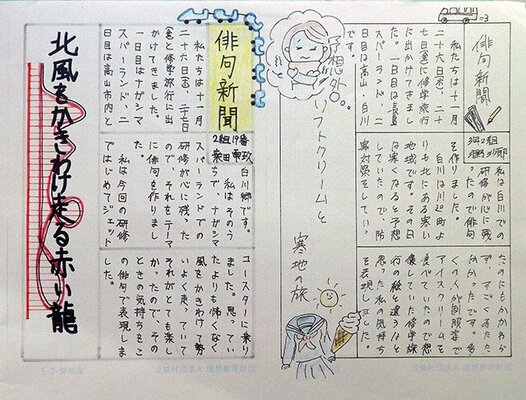 俳句新聞
私たちは十一月
二十六日(木)、二十
七日(金)に修学旅行
に出かけてきまし
た。一日目は長島
スパーランド、二
日目は高山、白川
です。
私は白川での
研修が心に残
ったので俳句
を作りました。
白川は川辺町よ
りも北にある寒い
地域です。その日
は寒くなると予想
していたので、防
寒対策をしていっ
たのにもかかわら
ず、すごくあたた
かかったです。多
くの人が制服姿で
アイスクリームを
食べていたので想
像していた修学旅
行の絵と違うなと
思った私の気持ち
を表現しました。
ソフトクリームと
寒地の旅
公益財団法人 理想教育財団
俳句新聞
2組19番
私たちは十一月
二十六日(木)、二十七日
(金)と修学旅行に出
かけてきました。
一日目はナガシマ
スパーランド、二
日目は高山市内と
白川郷です。
私はそのう
ちで、ナガシマ
スパーランドでの
研修が心に残った
ので、それをテーマ
に俳句を作りまし
た。
私は今回の研修
ではじめてジェット
コースターに乗り
ました。思ってい
たよりも怖くなく
風をかきわけて勢
いよく走っていて
それがとても楽し
かったので、その
ときの気持ちをこ
の俳句で表現しま
した。
北風をかきわけ走る赤い龍
公益財団法人 理想教育財団